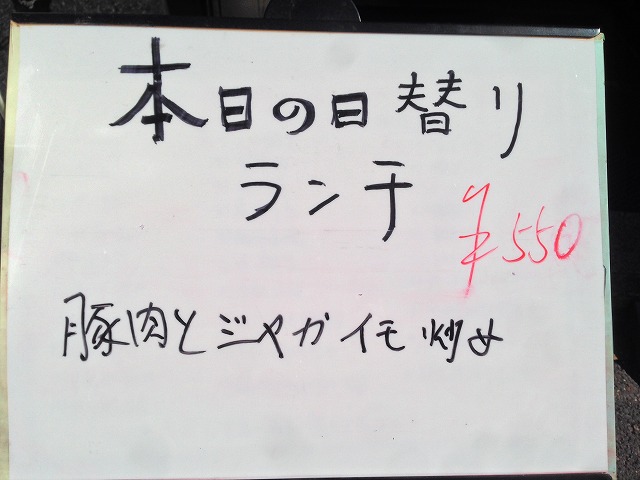 本日の日替り
ランチ
¥550
豚肉とジャガイモ炒め